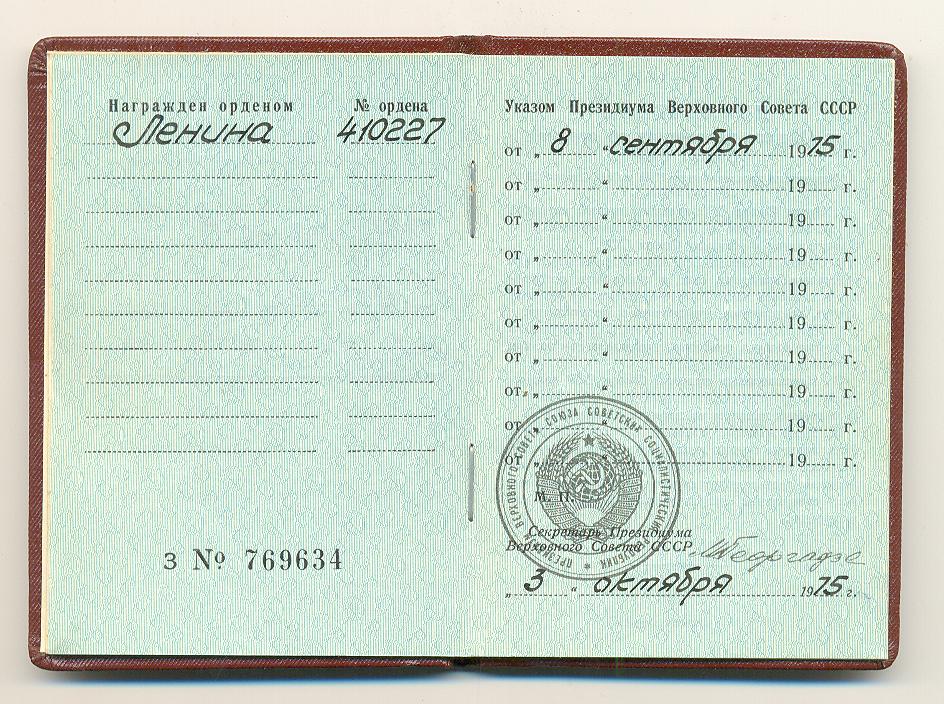 Награжден орденом
№ ордена
Ленина
410227
З № 769634
Указом Президиума Верховного Совета СССР
от „ 8 “ сентября 1975 г.
от „ “ 19 г.
от „ “ 19 г.
от „ “ 19 г.
от „ “ 19 г.
от „ “ 19 г.
от „ “ 19 г.
от „ “ 19 г.
от „ “ 19 г.
от „ “ 19 г.
ПРЕЗИДИУМ ВЕРХОВНОГО СОВЕТА СОЮЗА СОВЕТСКИХ СОЦИАЛИСТИЧЕСКИХ РЕСПУБЛИК
М. П.
Секретарь Президиума
Верховного Совета СССР
„ 3 “ октября 1975 г.